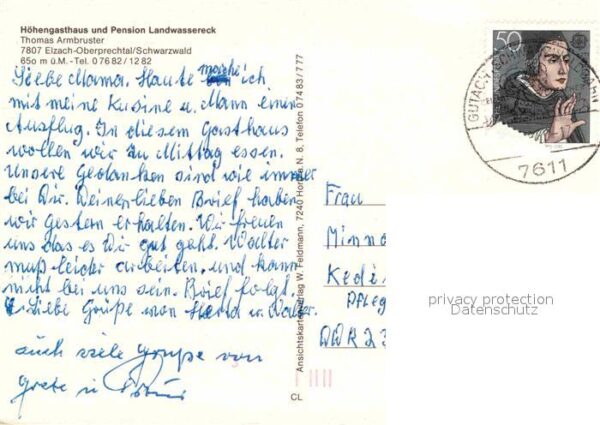 Höhengasthaus und Pension Landwassereck
Thomas Armbruster
7807 Elzach-Oberprechtal/Schwarzwald
650 m ü.M.-Tel. 07682/1282
Liebe Mama. Heute mache ich
mit meine Kusine u. Mann einen
Ausflug. In diesem Gasthaus
wollen wir zu Mittag essen.
Unsere Gedanken sind wie immer
bei Dir. Deinen lieben Brief haben
wir gestern erhalten. Wir freuen
uns das es Dir gut geht. Walter
muß leider arbeiten, und kann
nicht bei uns sein. Brief folgt.
Liebe Grüße von Herta u. Walter.
auch viele Grüße von
Grete u
Ansichtskartenverlag W. Feldmann, 7240 Horb a. N. 8, Telefon 07483/777
CL
50
GUTACH (SCHWARZWALDBAHN)
7611
Frau
Minna
Kedi
Pfleg
DDR 23
privacy protection
Datenschutz